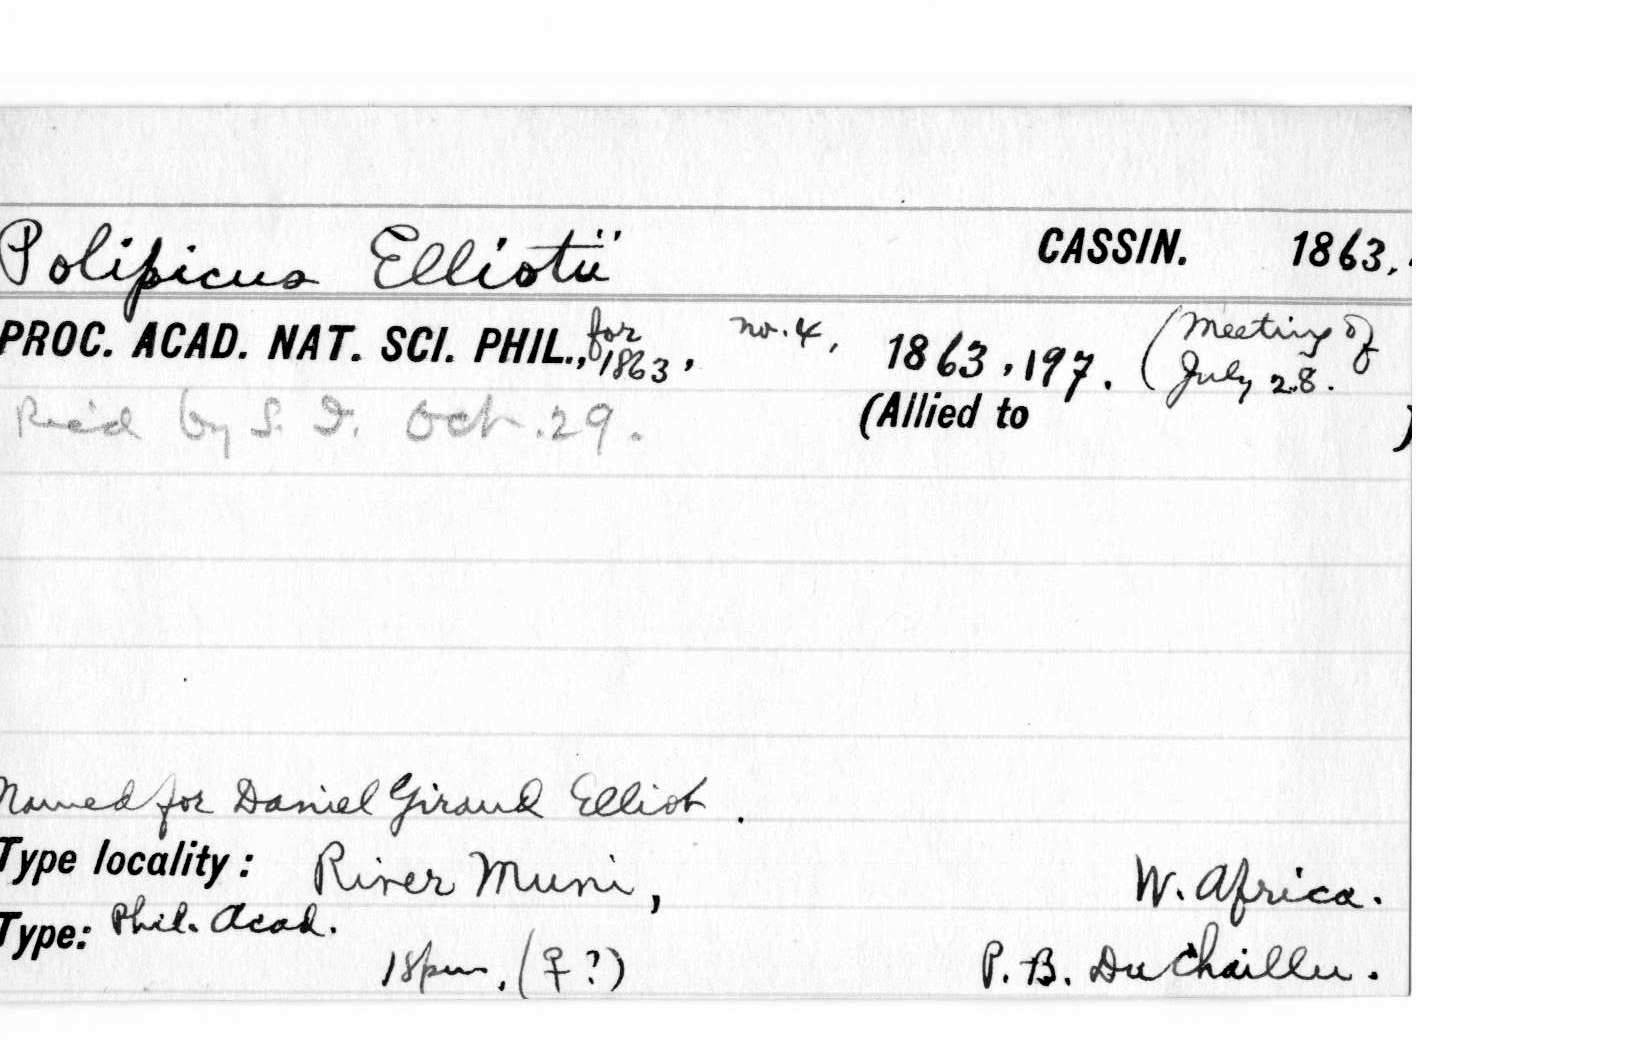 Polipicus Elliotii CASSIN. 1863.
PROC. ACAD. NAT. SCI. PHIL., for 1863, no. 4, 1863, 197. (Meeting of July 28.
(Allied to )
Rec'd by S. I. Oct. 29.
Named for Daniel Giraud Elliot.
Type locality: River Muni, W. Africa.
Type: Phil. Acad.
1 Spm. (♀?) P. B. DuChaillu.